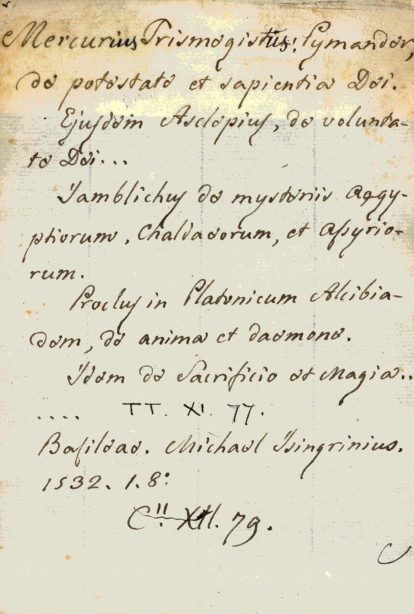 Mercurius Trismegistus: Pymander,
de potestate et sapientia Dei.
Ejusdem Asclepius, de volunta-
te Dei...
Iamblichus de mysteriis Aegy-
ptiorum, Chaldaeorum, et Assyrio-
rum.
Proclus in Platonicum Alcibia-
dem, de anima et daemone.
Idem de Sacrificio et Magia..
.... TT. XI. 77.
Basileae. Michael Isingrinius.
1532. 1. 8:
C." XII. 79.